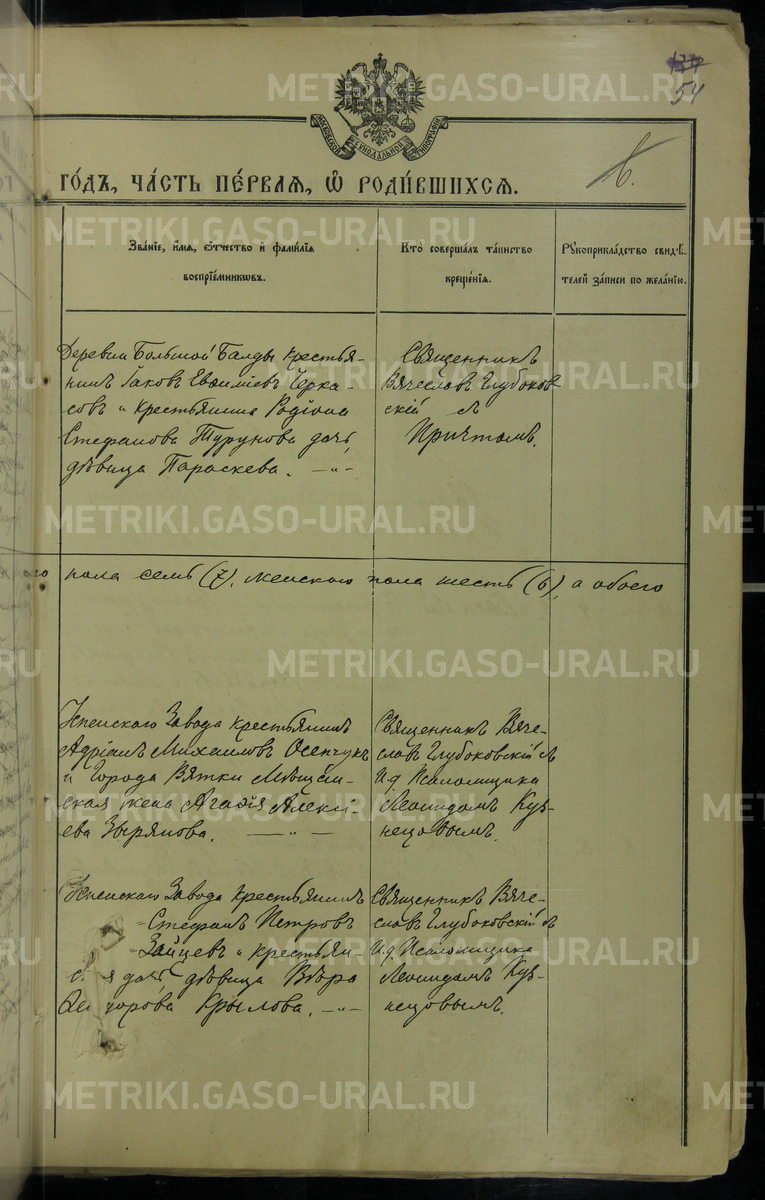 54
МОСКОВСКОЙ СѴНОДАЛЬНОЙ ТИПОГРАФІИ
ГО́ДЪ, ЧА́СТЬ ПЕ́РВАѦ, Ѽ РОДИ́ВШИХСѦ.
Зва́нїе, и́мѧ, о҆́тчество и҆ фами́лїѧ
воспрїе́мникѡвъ.
Кто̀ соверша́лъ та́инство
креще́нїѧ.
Рꙋкоприкла́дство свидѣ́-
телей за́писи по жела́нїю.
Деревни Большой Балды крестья-
нинъ Іаковъ Евѳиміевъ Черка-
совъ и крестьянина Родіона
Стефанова Турунова дочь,
дѣвица Параскева. —"—
Священникъ
Вячеславъ Глубоков-
скій съ
Причтомъ.
ого пола семь (7), женскаго пола шесть (6), а обоего
завода крестьянинъ
Адріанъ Михаиловъ Осенчукъ
и города Вятки мѣщан-
ская жена Агаѳія Алексі-
ева Зырянова. —"—
Священникъ Вяче-
славъ Глубоковскій съ
И.д. Псаломщика
Леонидомъ Куз-
нецовымъ.
завода крестьянинъ
Стефанъ Петровъ
Зайцевъ и крестьян-
дочь дѣвица Вѣра
Крылова. —"—
Священникъ Вяче-
славъ Глубоковскій съ
И.д. Псаломщика
Леонидомъ Куз-
нецовымъ.
METRIKI.GASO-URAL.RU